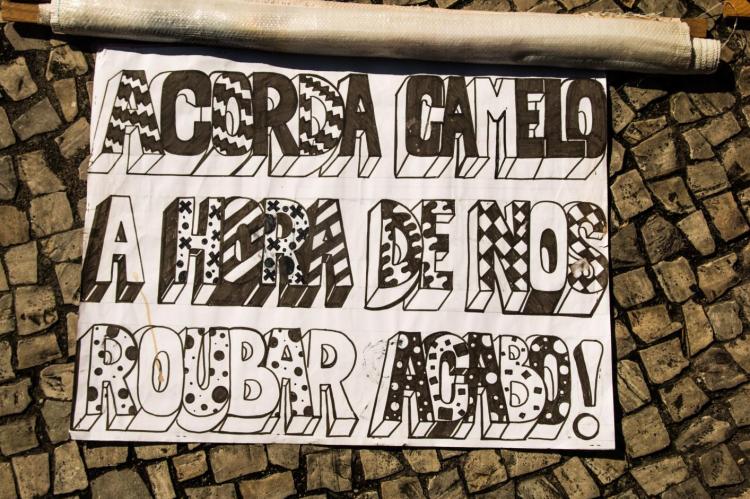 ACORDA CAMELO
A HORA DE NOS
ROUBAR ACABO!